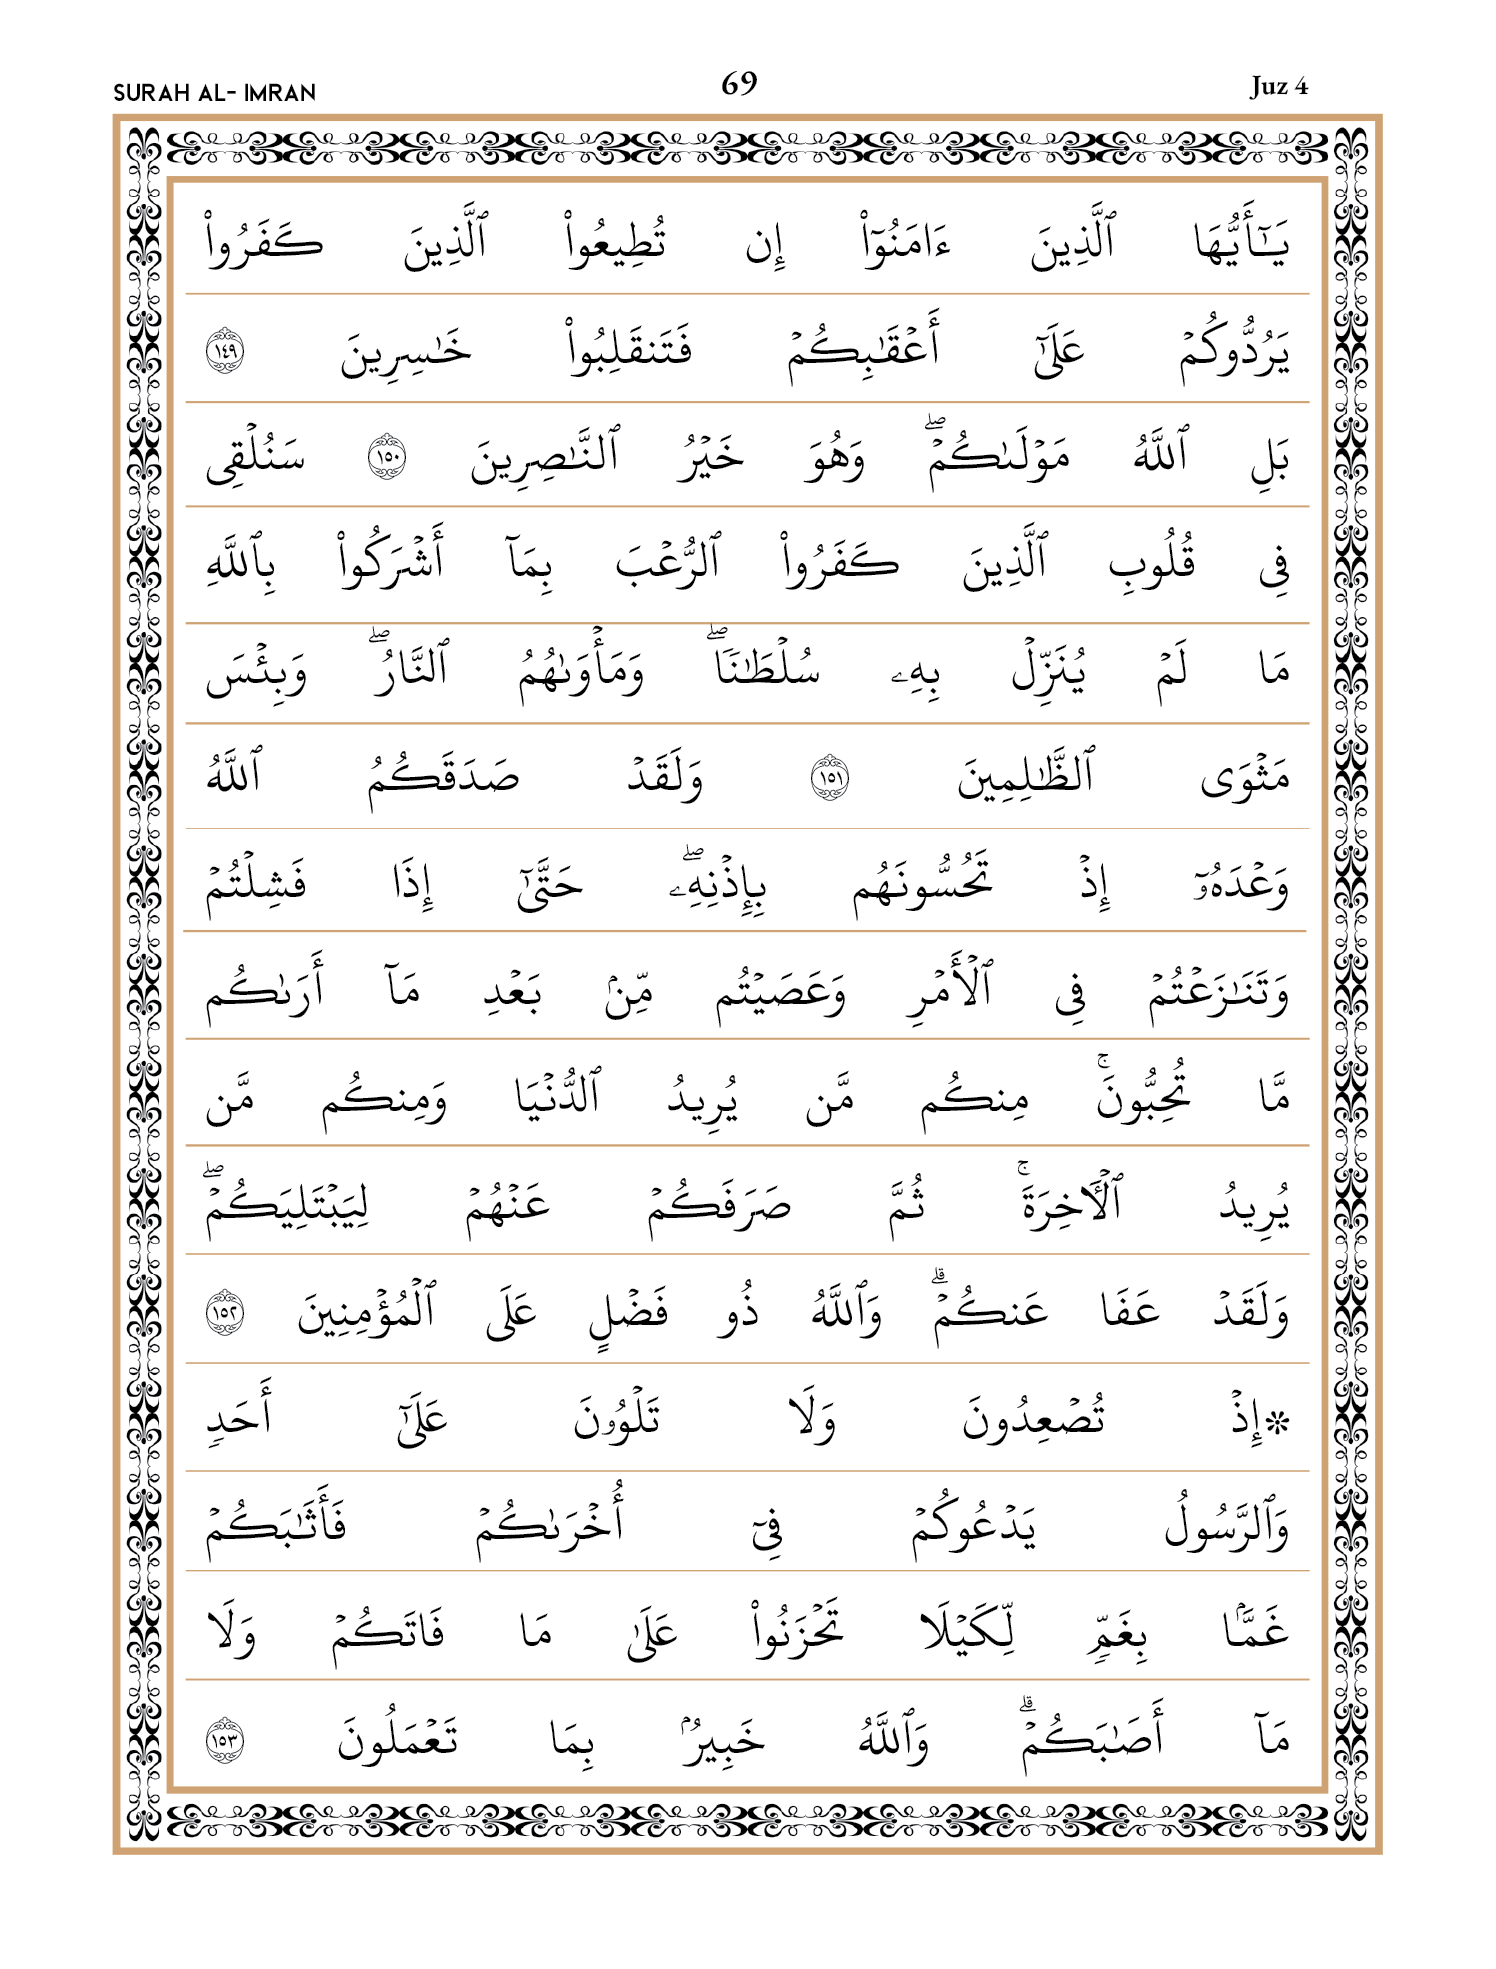 SURAH AL- IMRAN 69 Juz 4
يَـٰٓأَيُّهَا ٱلَّذِينَ ءَامَنُوٓا۟ إِن تُطِيعُوا۟ ٱلَّذِينَ كَفَرُوا۟
يَرُدُّوكُمْ عَلَىٰٓ أَعْقَـٰبِكُمْ فَتَنقَلِبُوا۟ خَـٰسِرِينَ ١٤٩
بَلِ ٱللَّهُ مَوْلَىٰكُمْ ۖ وَهُوَ خَيْرُ ٱلنَّـٰصِرِينَ ١٥٠ سَنُلْقِى
فِى قُلُوبِ ٱلَّذِينَ كَفَرُوا۟ ٱلرُّعْبَ بِمَآ أَشْرَكُوا۟ بِٱللَّهِ
مَا لَمْ يُنَزِّلْ بِهِۦ سُلْطَـٰنًا ۖ وَمَأْوَىٰهُمُ ٱلنَّارُ ۖ وَبِئْسَ
مَثْوَى ٱلظَّـٰلِمِينَ ١٥١ وَلَقَدْ صَدَقَكُمُ ٱللَّهُ
وَعْدَهُۥٓ إِذْ تَحُسُّونَهُم بِإِذْنِهِۦ ۖ حَتَّىٰٓ إِذَا فَشِلْتُمْ
وَتَنَـٰزَعْتُمْ فِى ٱلْأَمْرِ وَعَصَيْتُم مِّنۢ بَعْدِ مَآ أَرَىٰكُم
مَّا تُحِبُّونَ ۚ مِنكُم مَّن يُرِيدُ ٱلدُّنْيَا وَمِنكُم مَّن
يُرِيدُ ٱلْـَٔاخِرَةَ ۚ ثُمَّ صَرَفَكُمْ عَنْهُمْ لِيَبْتَلِيَكُمْ ۖ
وَلَقَدْ عَفَا عَنكُمْ ۗ وَٱللَّهُ ذُو فَضْلٍ عَلَى ٱلْمُؤْمِنِينَ ١٥٢
* إِذْ تُصْعِدُونَ وَلَا تَلْوُۥنَ عَلَىٰٓ أَحَدٍ
وَٱلرَّسُولُ يَدْعُوكُمْ فِىٓ أُخْرَىٰكُمْ فَأَثَـٰبَكُمْ
غَمًّۢا بِغَمٍّ لِّكَيْلَا تَحْزَنُوا۟ عَلَىٰ مَا فَاتَكُمْ وَلَا
مَآ أَصَـٰبَكُمْ ۗ وَٱللَّهُ خَبِيرٌۢ بِمَا تَعْمَلُونَ ١٥٣